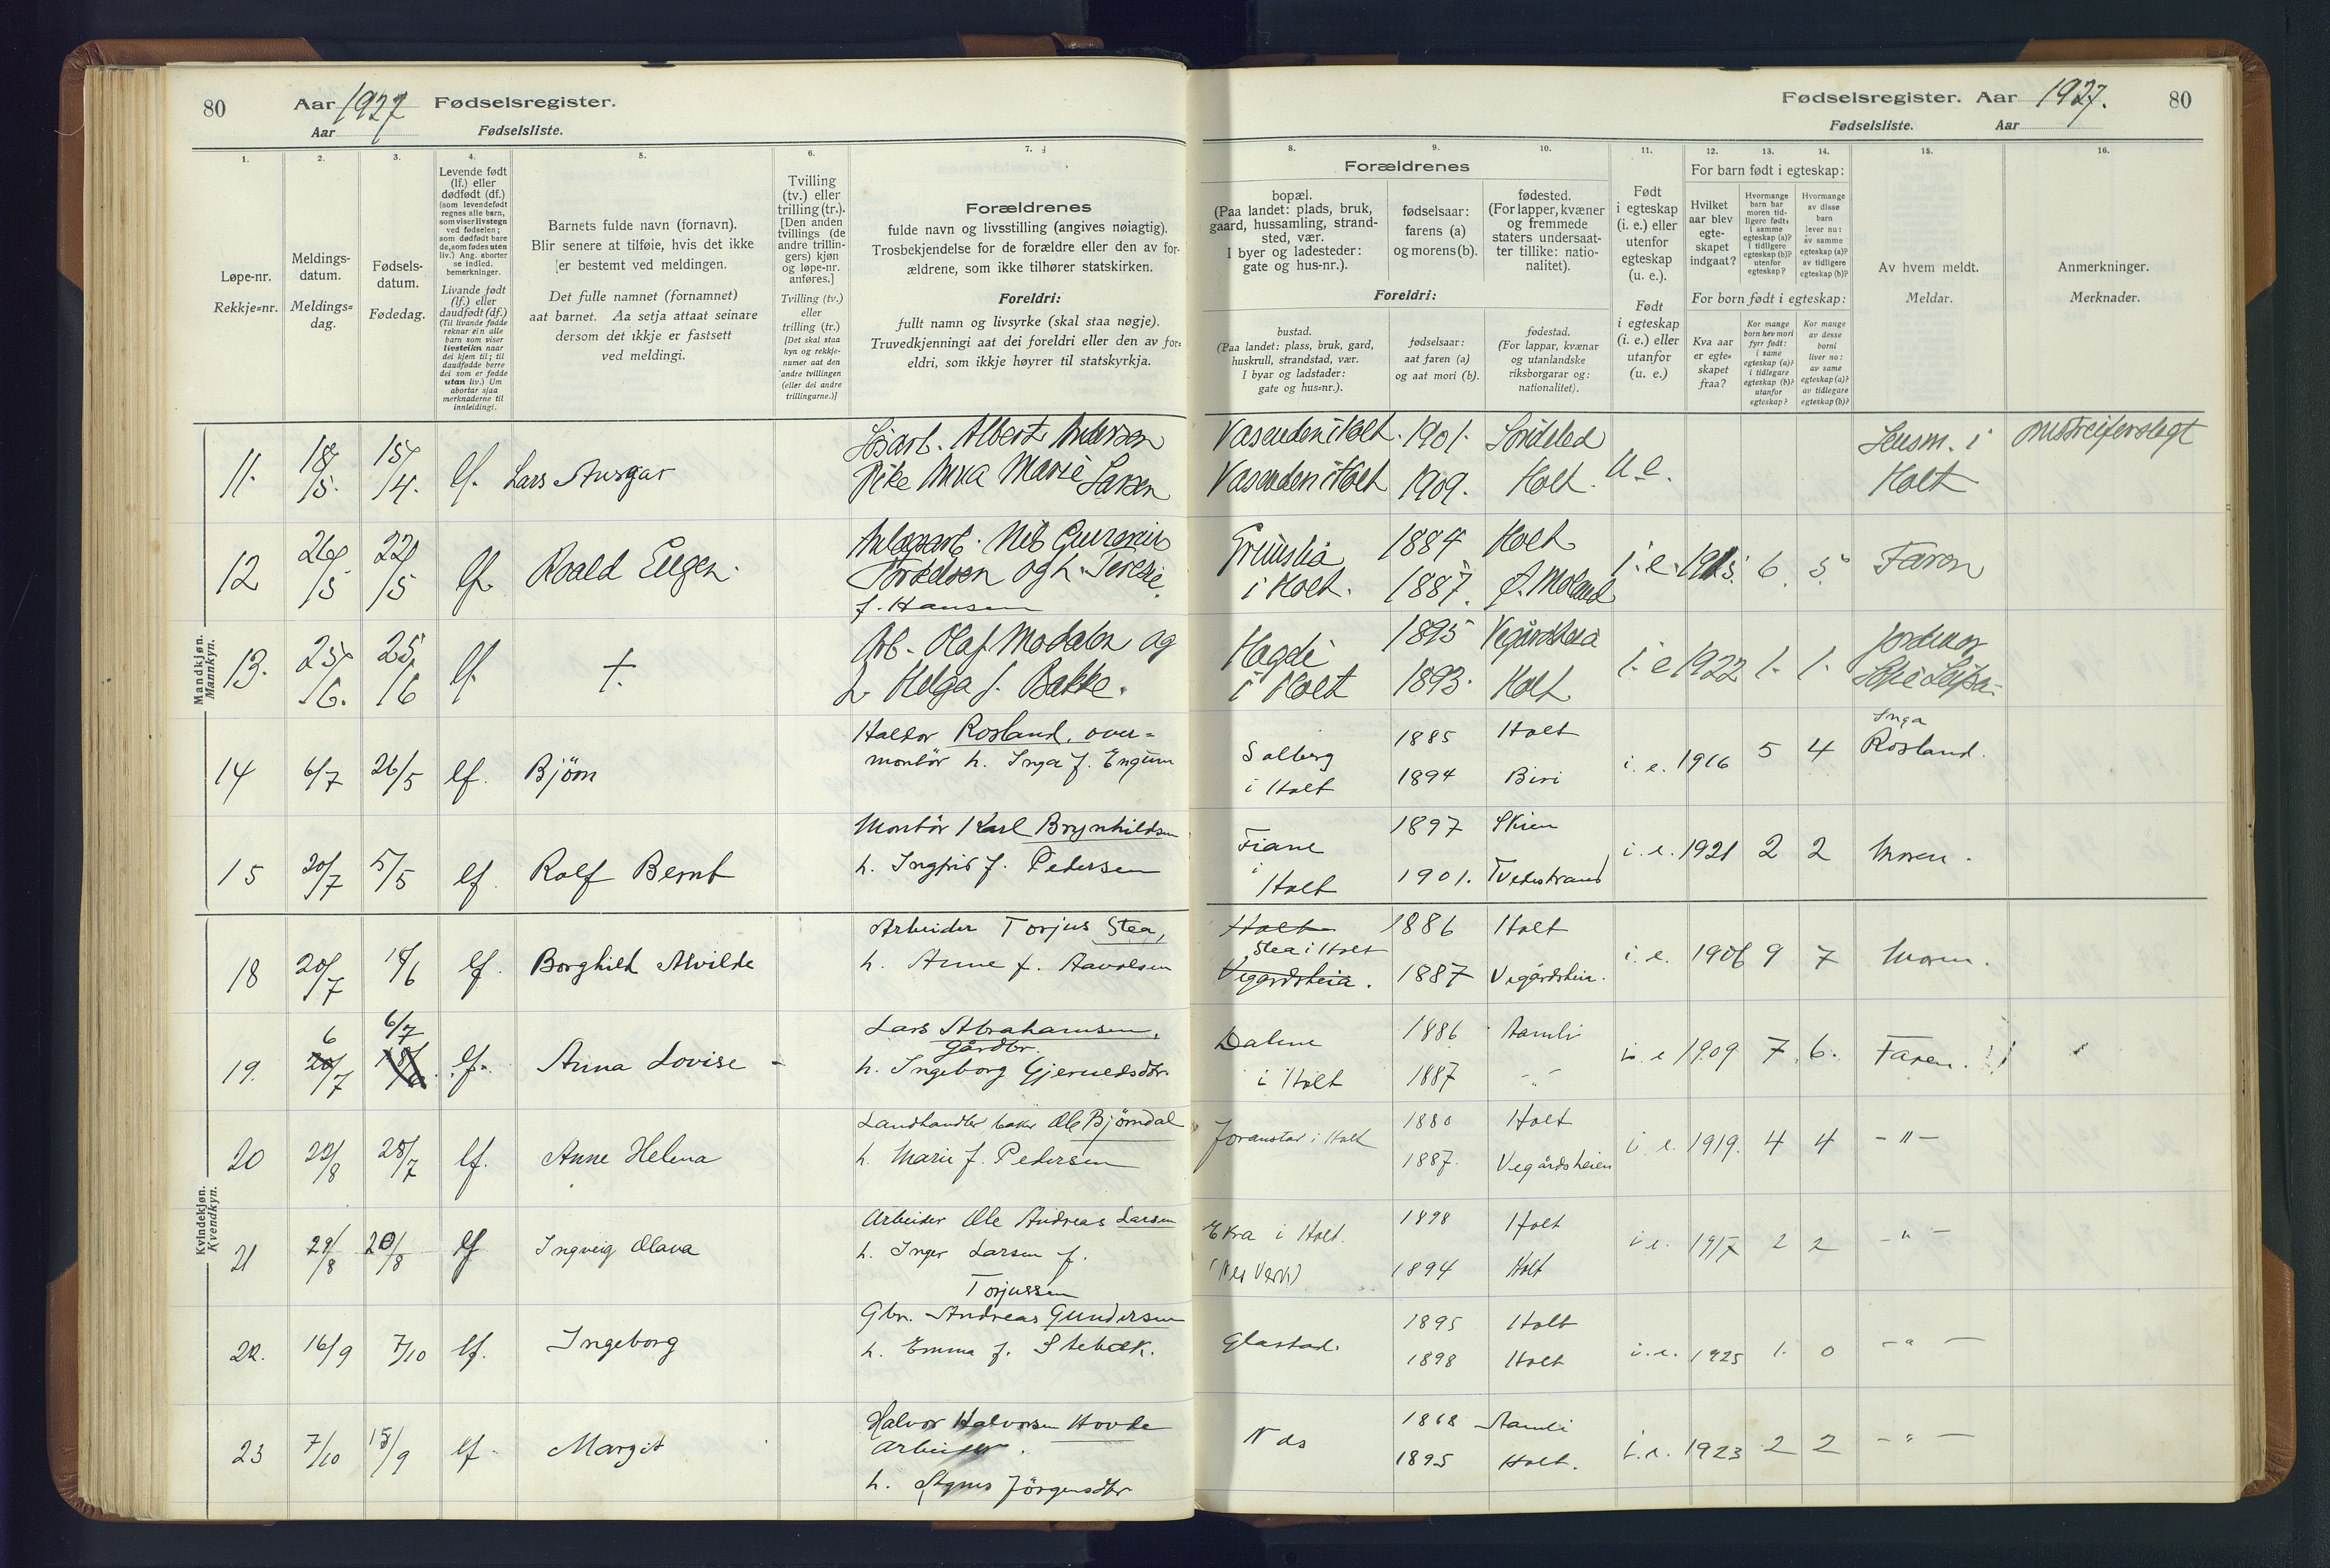 80 Aar 1927 Fødselsregister.
Aar Fødselsliste.
Fødselsregister. Aar 1927. 80
Fødselsliste. Aar
1. 2. 3. 4. 5. 6. 7.
Løpe-nr.
Rekkje=nr.
Meldings-
datum.
Meldings=
dag.
Fødsels-
datum.
Fødedag.
Levende født
(lf.) eller
dødfødt (df.)
(som levendefødt
regnes alle barn,
som viser livstegn
ved fødselen;
som dødfødt bare
de, som fødes uten
liv.) Ang. aborter
se indled.
bemerkninger.
Livande født
(lf.) eller
daudfødt (df.)
(Til livande fødde
reknar ein alle
barn som viser
livsteikn naar
dei kjem til; til
daudfødde berre
dei som er fødde
utan liv.) Um
abortar sjaa
merknaderne til
innleidingi.
Barnets fulde navn (fornavn).
Blir senere at tilføie, hvis det ikke
er bestemt ved meldingen.
Det fulle namnet (fornamnet)
aat barnet. Aa setja attaat seinare
dersom det ikkje er fastsett
ved meldingi.
Tvilling
(tv.) eller
trilling (tr.).
[Den anden
tvillings (de
andre trillin-
gers) kjøn
og løpe-nr.
anføres.]
Tvilling (tv.)
eller
trilling (tr.)
[Det skal staa
kyn og rekkje-
numer aat den
andre tvillingen
(eller dei andre
trillingarne.)]
Forældrenes
fulde navn og livsstilling (angives nøiagtig).
Trosbekjendelse for de forældre eller den av for-
ældrene, som ikke tilhører statskirken.
Foreldri:
fullt namn og livsyrke (skal staa nøgje).
Truvedkjenningi aat dei foreldri eller den av for-
eldri, som ikkje høyrer til statskyrkja.
8. 9. 10. 11. 12. 13. 14. 15. 16.
Forældrenes
bopæl.
(Paa landet: plads, bruk,
gaard, hussamling, strand-
sted, vær.
I byer og ladesteder:
gate og hus-nr.).
fødselsaar:
farens (a)
og morens (b).
fødested.
(For lapper, kvæner
og fremmede
staters undersaat-
ter tillike: natio-
nalitet).
Foreldri:
bustad.
(Paa landet: plass, bruk, gard,
huskrull, strandstad, vær.
I byar og ladstader:
gate og hus=nr.).
fødselsaar:
aat faren (a)
og aat mori (b).
fødestad.
(For lappar, kvænar
og utanlandske
riksborgarar og:
nationalitet).
Født
i egteskap
(i. e.) eller
utenfor
egteskap
(u. e.).
Født
i egteskap
(i. e.) eller
utanfor
(u. e.)
For barn født i egteskap:
Hvilket
aar blev
egte-
skapet
indgaat?
Hvormange
barn har
moren tid-
ligere født:
i samme
egteskap (a)?
i tidligere
egteskap (b)?
utenfor
egteskap?
Hvormange
av disse
barn
lever nu:
av samme
egteskap (a)?
av tidligere
egteskap (b)?
For born født i egteskap:
Kva aar
er egte=
skapet
fraa?
Kor mange
born hev mori
fyrr født:
i same
egteskap (a)?
i tidlegare
egteskap (b)?
utanfor
egteskap?
Kor mange
av desse
borni
liver no:
av same
egteskap (a)?
av tidlegare
egteskap (b)?
Av hvem meldt.
Meldar.
Anmerkninger.
Merknader.
Mandkjøn.
Mannkyn.
11. 18/5. 15/4. lf. Lars Ansgar
Albert Andersen
Pike Anna Marie Larsen
Vasenden i Holt. 1901. Søndeled
Vasenden i Holt 1909. Holt. u.e.
Lensm. i
Holt
omstreiferslegt
12 26/5 22/5 lf. Roald Eugen.
Torkelsen og h. Terese
f. Hansen
Grimslia 1884 Holt
i Holt. 1887. Ø. Moland i. e. 1915. 6. 5. Faren
13. 25/6. 25/6 lf. +.
Arb. Olaf Modalen og
h. Helga f. Bakke.
Hagde 1895 Vegårdsheia
i Holt 1893. Holt i. e 1922 1. 1. Jordmor
14 6/7 26/5 lf. Björn
Haldor Rosland, over=
montör h. Inga f. Engum
Solberg 1885 Holt
i Holt 1894 Biri i. e. 1916 5 4 Inga
Rosland.
15 20/7 5/5 lf. Rolf Bernt
Montör Karl Brynhildsen
h. Ingrid f. Pedersen
Fiane 1897 Skien
i Holt 1901. Tvedestrand i. e. 1921 2 2 Moren.
Kvindekjøn.
Kvendkyn.
18 20/7 18/6 lf. Borghild Alvilde
Arbeider Torjus Stea,
h. Anne f. Aavolsen
Holt 1886 Holt
Stea i Holt
Vegårdsheia. 1887 Vegårdsheia. i. e. 1906 9 7 Moren.
19. 6 20/7 6/7 18/6. lf. Anna Lovise -
Lars Abrahamsen,
gårdbr.
h. Ingeborg Gjerulsdtr.
Dalene 1886 Aamli
i Holt 1887 -"- i. e 1909 7. 6. Faren.
20 22/8 28/7 lf. Anne Helena
Landhandler, baker Ole Björndal
h. Marie f. Pedersen
Joranstad i Holt 1880 Holt
1887. Vegårdsheien i. e. 1919. 4 4 -"-
21 29/8 20/8 lf Ingveig Olava
Arbeider Ole Andreas Larsen
h. Inger Larsen f.
Torjussen
Ekra i Holt. 1898 Holt
(Nes Verk) 1894 Holt i. e. 1917 2 2 -"-
22. 16/9 7/10 lf. Ingeborg
Gbr. Andreas Gundersen
h. Emma f. Stebæk.
Glastad. 1895 Holt
1898 Holt i. e. 1925 1. 0 -"-
23 7/10 18/9 lf. Margit
Halvor Halvorsen Hovde
Arbeider.
h. Agnes Jörgensdtr
Nes 1868 Aamli
1895 Holt. i. e. 1923 2 2 -"-